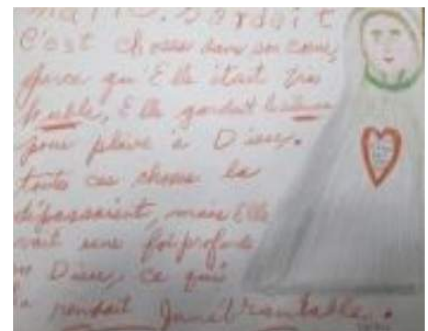 Marie, gardait
C'est choses dans son coeur,
parce qu'Elle était très
humble, Elle gardait le silence
pour plaire à Dieu.
toute ces choses la
dépassaient, mais Elle
avait une foi profonde
en Dieu, ce qui
la rendait Inné